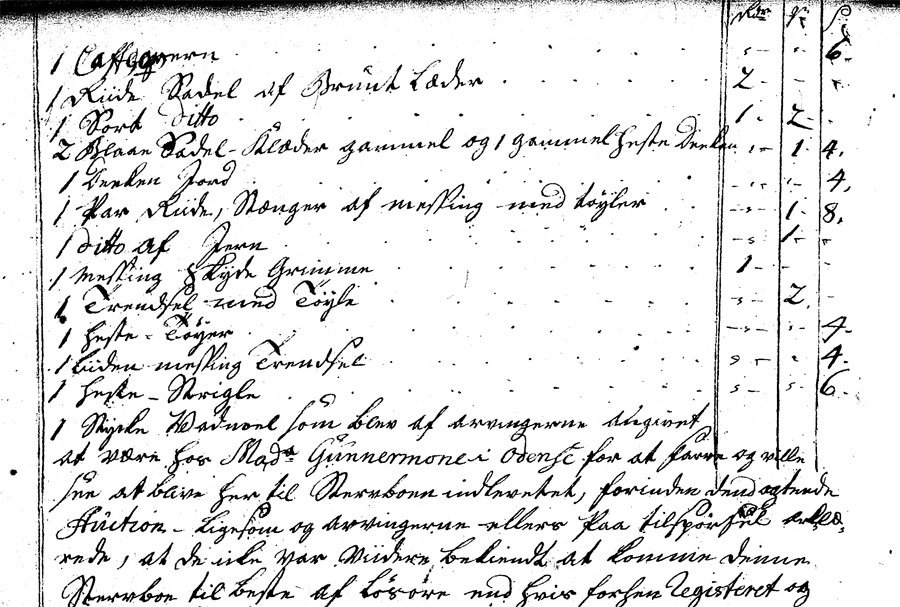 Rdr ꝟ ß
1 Caffeqvern - - 6.
1 Riide Sadel af Brunt Læder 2 - -
1 Sort ditto 1. 2. -
2 Blaae Sadel-Klæder gammel og 1 gammel heste Decken - 1. 4.
1 Decken Jord - - 4.
1 Par Riide, Stænger af messing med tøyler - 1. 8.
1 ditto af Jern - 1. -
1 messing Skyde Grimme 1 - -
1 Trendsel med Tøyle - 2. -
1 heste-Tøyer - - 4.
1 liiden messing Trendsel - - 4.
1 heste-Strigle - - 6.
1 Stycke Vadmel som blev af arvingerne angivet
at være hos Mada Gunnermone i Odense for at farve og ville
see at blive her til Stervboen indlevetet, forinden dend agtende
Auction - ligesom og arvingerne ellers paa tilspørsel erklæ,
rede, at de icke var viidere bekiendt at komme denne
Stervboe til beste af løsøre end hvis forhen Registeret og